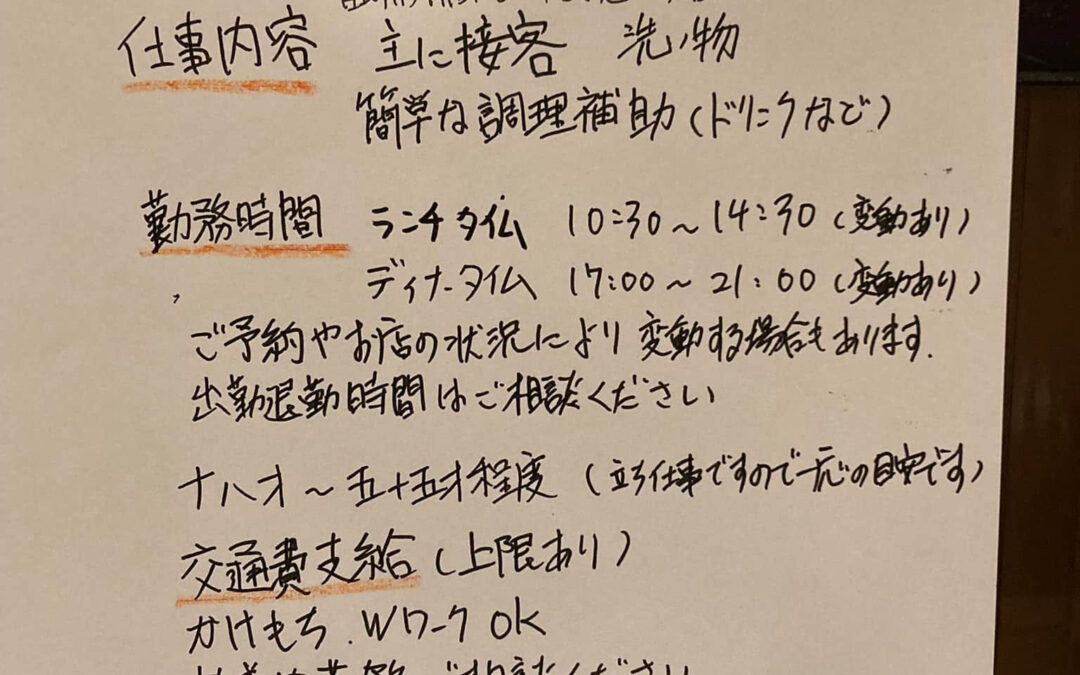 仕事内容 主に接客 洗い物
簡単な調理補助(ドリンクなど)
勤務時間 ランチタイム 10:30～14:30(変動あり)
ディナータイム 17:00～21:00(変動あり)
ご予約やお店の状況により変動する場合もあります.
出勤退勤時間はご相談ください
十八才～五十五才程度(立ち仕事ですので一応の目安です)
交通費支給(上限あり)
かけもち.Wワーク OK
ご相談ください